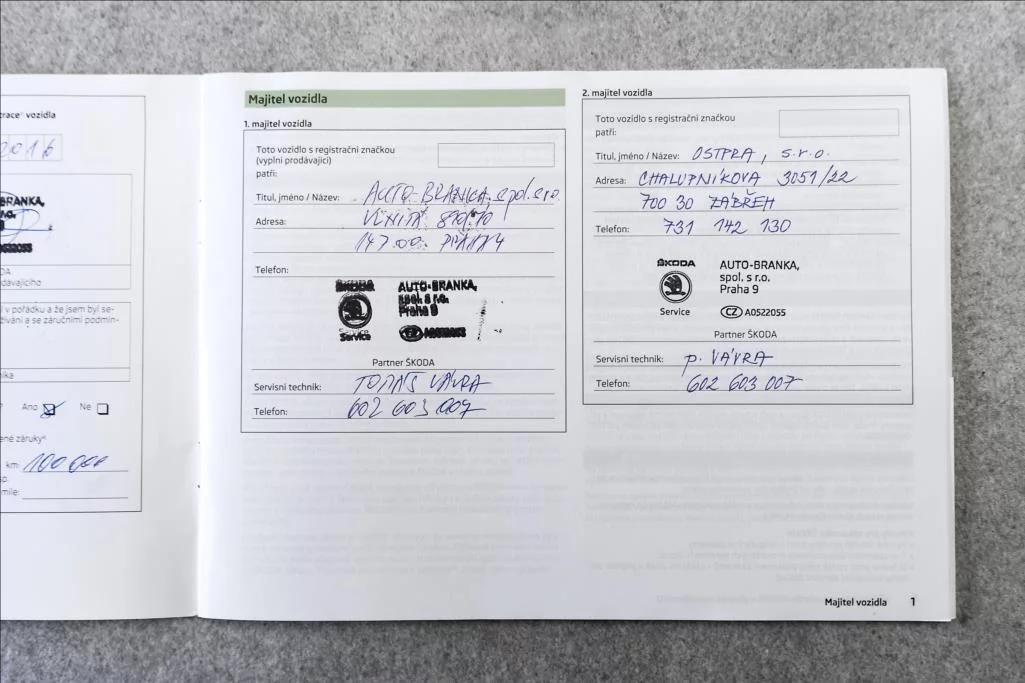 trace" vozidla
2016
BRANKA,
r.o.
DA
dávajícího
i v pořádku a že jsem byl se-
žívání a se záručními podmín-
ika
? Ano Ne
ené záruky"
km: 100 000
sp.
míle:
Majitel vozidla
1. majitel vozidla
Toto vozidlo s registrační značkou
(vyplní prodávající)
patří:
Titul, jméno / Název: AUTO-BRANKA, spol. s r.o.
Adresa:
147 00
Telefon:
ŠKODA
Service
AUTO-BRANKA,
spol. s r.o.
Praha 9
CZ A0522055
Partner ŠKODA
Servisní technik: TOMÁŠ VÁVRA
Telefon: 602 603 007
2. majitel vozidla
Toto vozidlo s registrační značkou
patří:
Titul, jméno / Název: OSTPRA, s.r.o.
Adresa: CHALUPNÍKOVA 3051/22
700 30 ZÁBŘEH
Telefon: 731 142 130
ŠKODA
Service
AUTO-BRANKA,
spol. s r.o.
Praha 9
CZ A0522055
Partner ŠKODA
Servisní technik: p. VÁVRA
Telefon: 602 603 007
Majitel vozidla 1